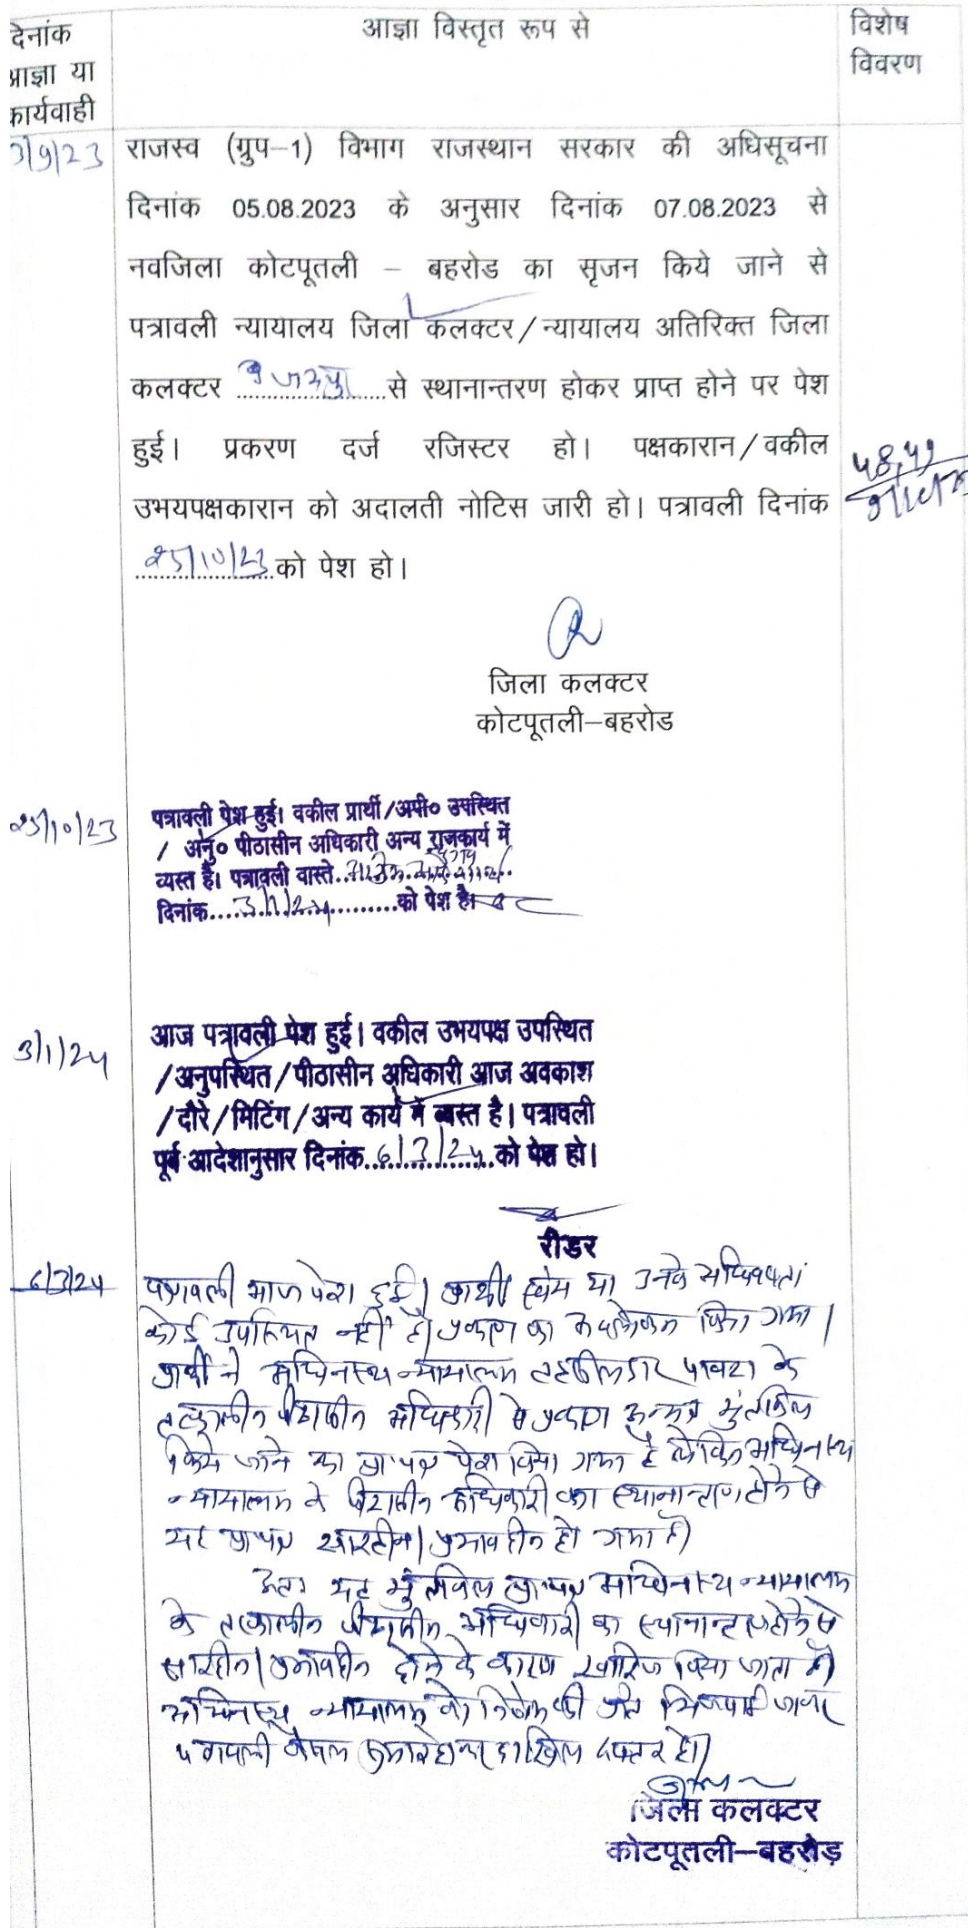 दिनांक
आज्ञा या
कार्यवाही
आज्ञा विस्तृत रूप से
विशेष
विवरण
3/9/23
राजस्व (ग्रुप–1) विभाग राजस्थान सरकार की अधिसूचना
दिनांक 05.08.2023 के अनुसार दिनांक 07.08.2023 से
नवजिला कोटपूतली – बहरोड का सृजन किये जाने से
पत्रावली न्यायालय जिला कलक्टर/न्यायालय अतिरिक्त जिला
कलक्टर ..जयपुर.. से स्थानान्तरण होकर प्राप्त होने पर पेश
हुई। प्रकरण दर्ज रजिस्टर हो। पक्षकारान/वकील
उभयपक्षकारान को अदालती नोटिस जारी हो। पत्रावली दिनांक
25/10/23 को पेश हो।
जिला कलक्टर
कोटपूतली–बहरोड
25/10/23
पत्रावली पेश हुई। वकील प्रार्थी/अपी० उपस्थित
/ अनु० पीठासीन अधिकारी अन्य राजकार्य में
व्यस्त है। पत्रावली वास्ते
दिनांक....3/1/24....को पेश है।
3/1/24
आज पत्रावली पेश हुई। वकील उभयपक्ष उपस्थित
/अनुपस्थित/पीठासीन अधिकारी आज अवकाश
/दौरे/मिटिंग/अन्य कार्य में व्यस्त है। पत्रावली
पूर्व आदेशानुसार दिनांक..6/3/24..को पेश हो।
रीडर
6/3/24
पत्रावली आज पेश हुई। प्रार्थी स्वयं या उनके अधिवक्ता
कोई उपस्थित नहीं है। प्रकरण का अवलोकन किया गया।
प्रार्थी ने अधिनस्थ न्यायालय तहसीलदार पावटा के
तत्कालीन पीठासीन अधिकारी से प्रकरण अन्यत्र मुंतकिल
किये जाने का प्रा.पत्र पेश किया गया है लेकिन अधिनस्थ
न्यायालय के पीठासीन अधिकारी का स्थानान्तरण होने से
यह प्रा.पत्र सारहीन/प्रभावहीन हो गया है।
अतः यह मुंतकिल प्रा.पत्र अधिनस्थ न्यायालय
के तत्कालीन पीठासीन अधिकारी का स्थानान्तरण होने से
सारहीन/प्रभावहीन होने के कारण खारिज किया जाता है।
अधिनस्थ न्यायालय को निर्णय की प्रति भिजवाई जाकर
पत्रावली फैसल शुमार होकर दाखिल दफ्तर हो।
जिला कलक्टर
कोटपूतली–बहरोड़